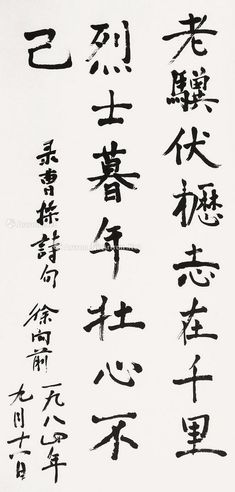 老驥伏櫪志在千里
烈士暮年壮心不
已
录曹操詩句
徐向前 一九八四年
九月十八日